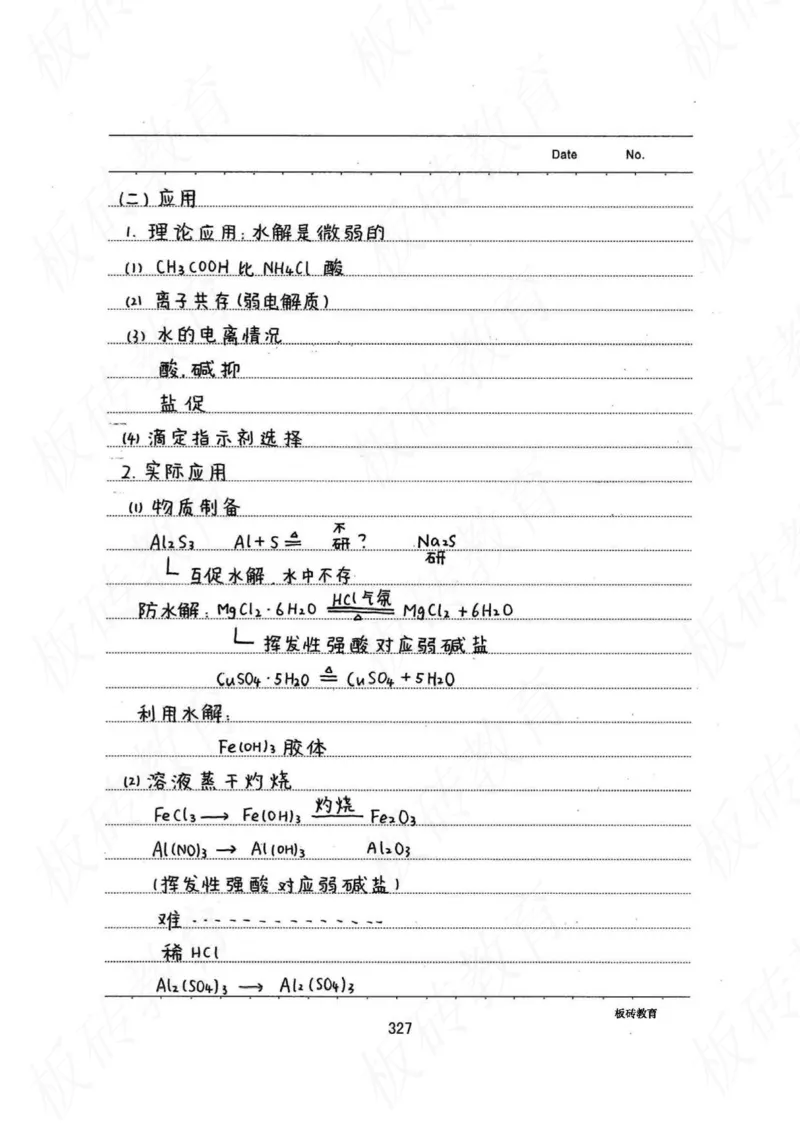 Date No.
(二) 应用
1. 理论应用: 水解是微弱的
(1) CH₃COOH 比 NH₄Cl 酸
(2) 离子共存 (弱电解质)
(3) 水的电离情况
酸, 碱抑
盐促
(4) 滴定指示剂选择
2. 实际应用
(1) 物质制备
Al₂S₃ Al+S ≜ 不研? Na₂S 研
└ 互促水解, 水中不存
防水解: MgCl₂·6H₂O HCl气氛 ≜ MgCl₂+6H₂O
└ 挥发性强酸对应弱碱盐
CuSO₄·5H₂O ≜ CuSO₄+5H₂O
利用水解:
Fe(OH)₃ 胶体
(2) 溶液蒸干灼烧
FeCl₃ → Fe(OH)₃ 灼烧 Fe₂O₃
Al(NO)₃ → Al(OH)₃ Al₂O₃
(挥发性强酸对应弱碱盐)
难 --------------
稀 HCl
Al₂(SO₄)₃ → Al₂(SO₄)₃
板砖教育
327